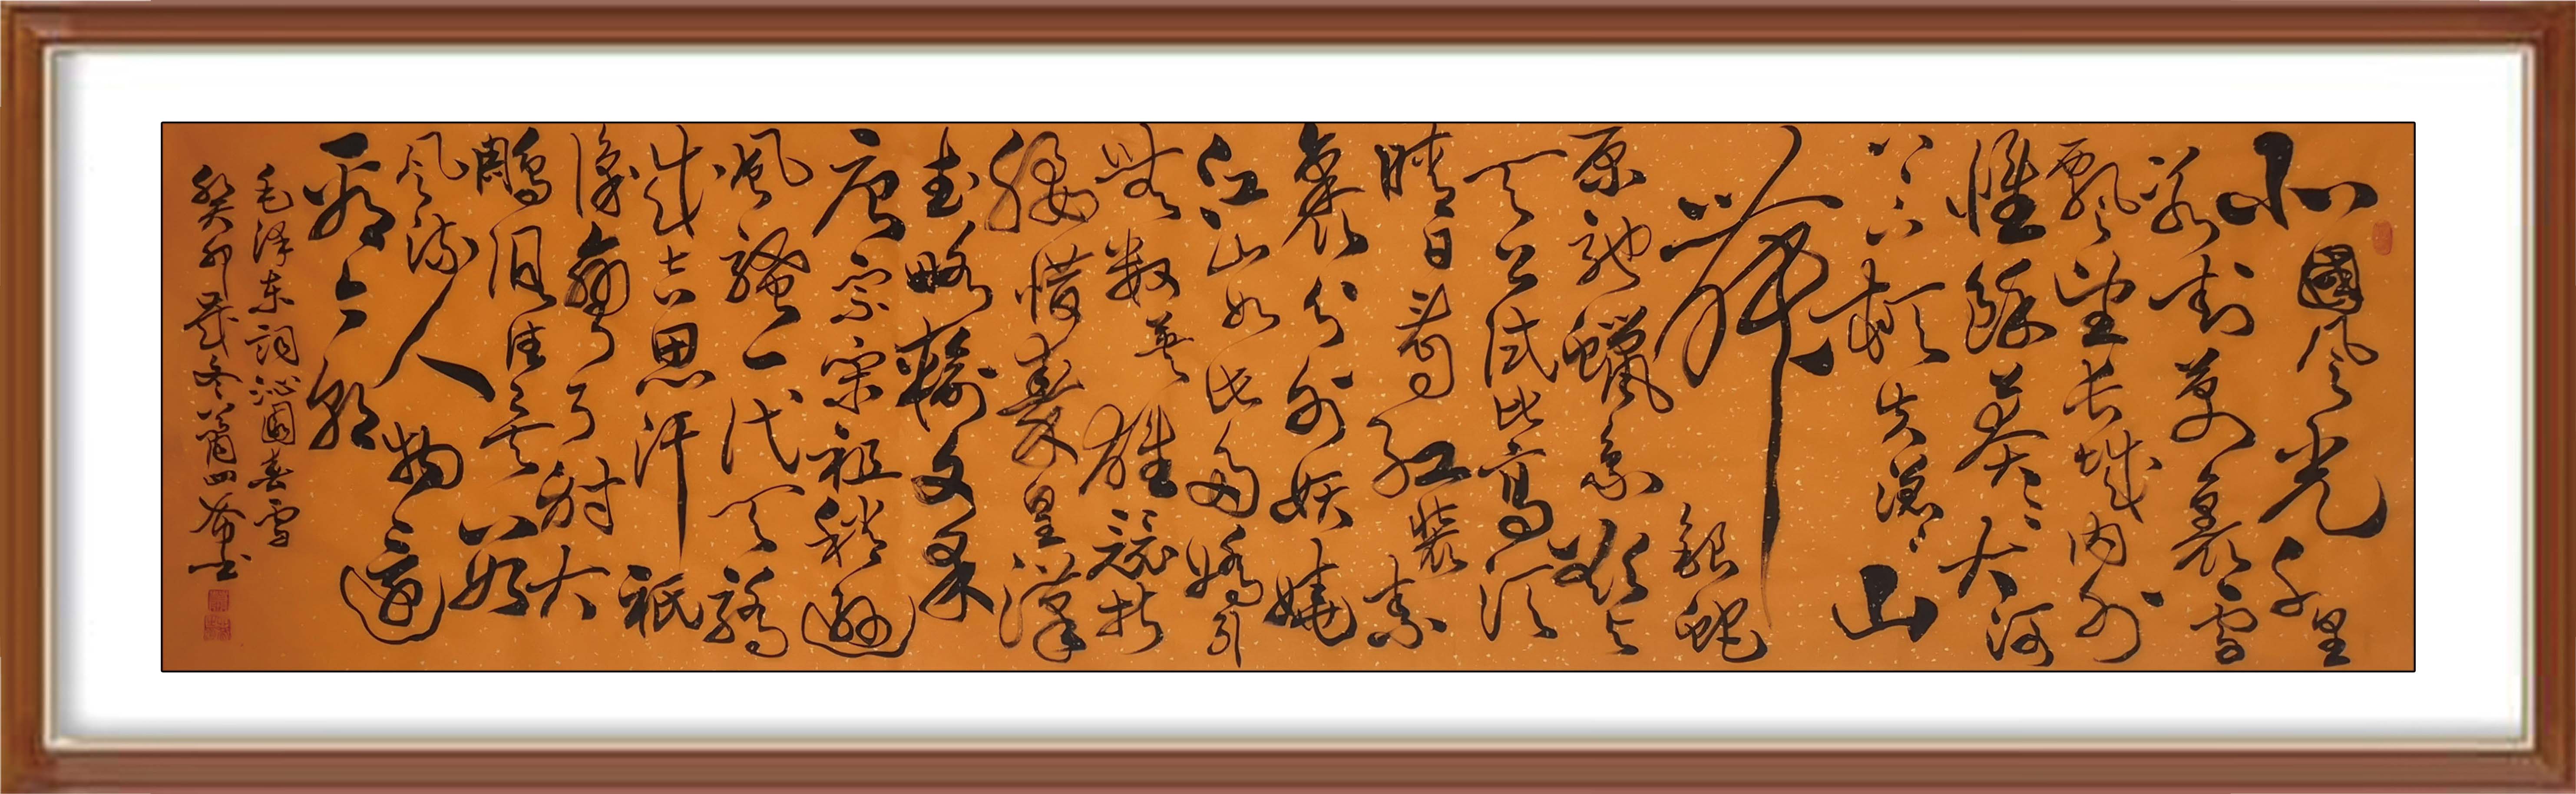 北國风光千里
冰封萬里雪
飄望長城内外
惟餘莽莽大河
上下頓失滔滔山
舞銀蛇
原馳蠟象欲与
天公試比高須
晴日看紅裝素
裹分外妖嬈
江山如此多嬌引
無數英雄競折
腰惜秦皇漢
武略輸文采
唐宗宋祖稍遜
風騷一代天驕
成吉思汗祇
識彎弓射大
鵰俱往矣數
风流人物還
看今朝
毛泽东詞沁園春雪
癸卯歲冬